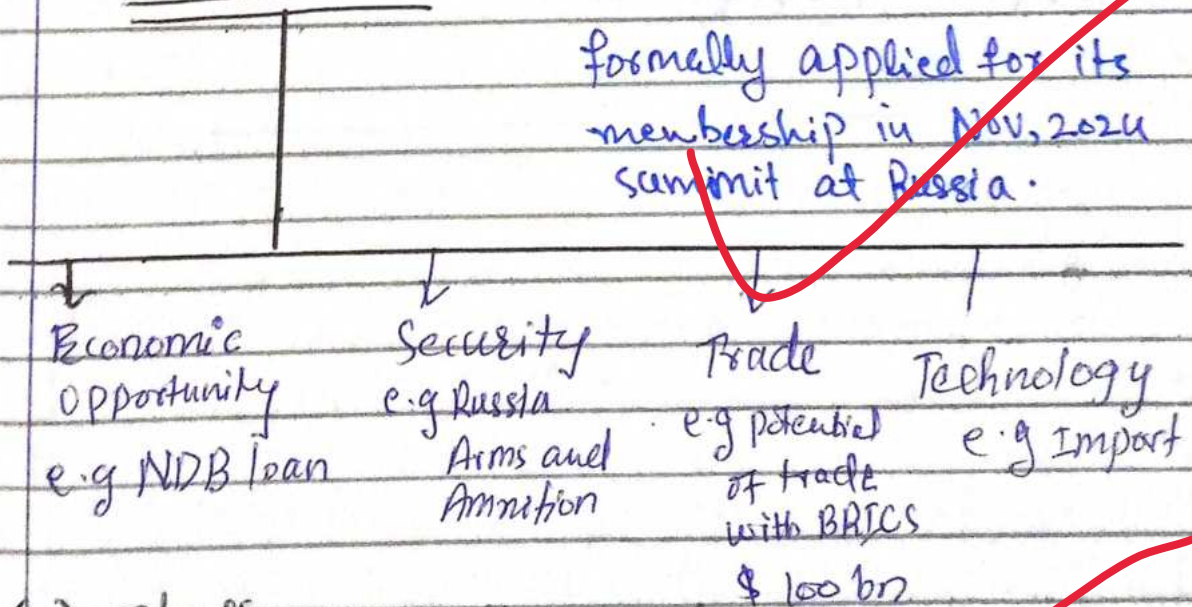 formally applied for its
membership in Nov, 2024
summit at Russia.
Economic
opportunity
e.g NDB loan
Security
e.g Russia
Arms and
Amnition
Trade
e.g potential
of trade
with BRICS
$ 100 bn
Technology
e.g Import